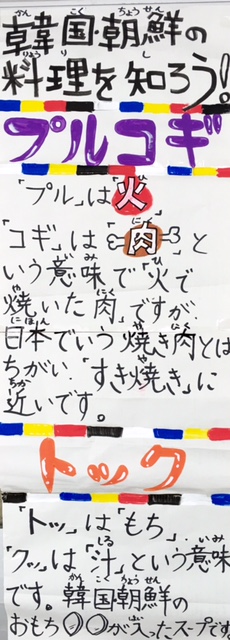 韓国・朝鮮の
料理を知ろう!
プルコギ
「プル」は「火」
「コギ」は「肉」と
いう意味で「火で
焼いた肉」ですが、
日本でいう焼き肉とは
ちがい、「すき焼き」に
近いです。
トック
「トッ」は「もち」、
「クッ」は「汁」という意味
です。韓国朝鮮の
おもち〇〇が入ったスープです